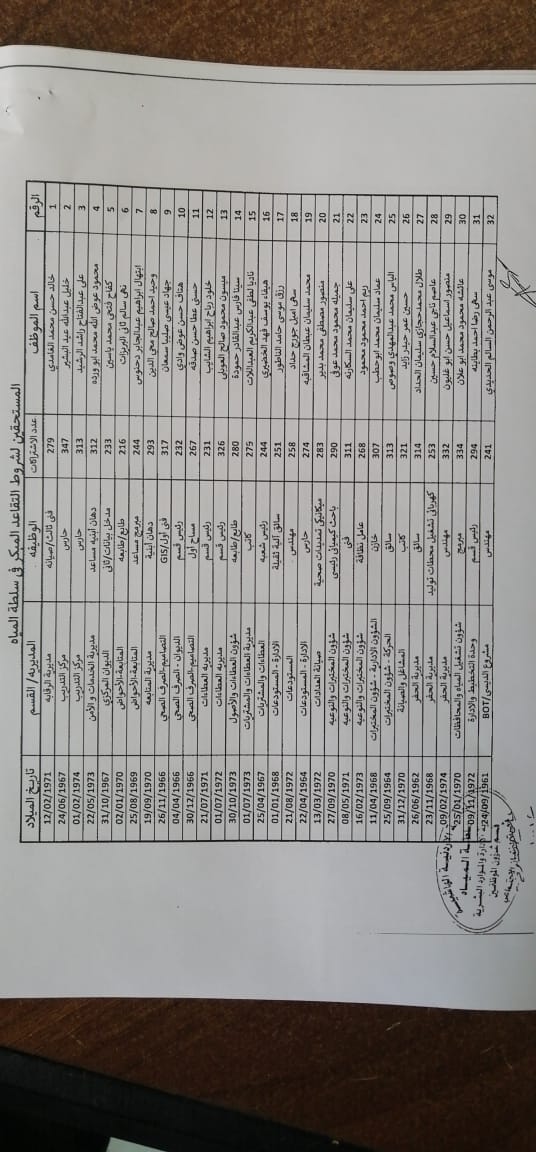 المستحقين لشروط التقاعد المبكر في سلطة المياه
الرقم اسم الموظف عدد الاشتراكات الوظيفه المديريه / القسم تاريخ الميلاد
1 خالد حسن محمد الغامدي 279 فني ثالث/صيانه مديرية الرقابه 12/02/1971
2 خليل عبدالله عبد البشير 347 حارس مركز التدريب 24/06/1967
3 علي عبدالفتاح راشد الرشيد 313 حارس مركز التدريب 01/02/1974
4 محمود عوض الله محمد ابو ورده 312 دهان أبنيه مساعد مديرية الخدمات و الأمن 22/05/1973
5 كفاح فتحي محمد ياسين 233 مدخل بيانات/ثاني الديوان المركزي 31/10/1967
6 نهى سالم 216 طابع/طابعه المتابعة-الأحواض 02/01/1970
7 ابتهال ابراهيم عبدالجابر دحنوس 244 مبرمج مساعد المتابعة-الأحواض 25/08/1969
8 وحيد احمد صالح محي الدين 293 دهان أبنية مديرية المتابعه 19/09/1970
9 جهاد عيسى صليبا سمعان 317 فني أول/GIS التصاميم-الصرف الصحي 26/11/1966
10 هتاف حسن عوض وادي 232 رئيس قسم الديوان - الصرف الصحي 04/04/1966
11 حسني عطا حسن صدقه 267 مساح أول التصاميم-الصرف الصحي 30/12/1966
12 خلود رباح ابراهيم الشايب 231 رئيس قسم مديريه العطاءات 21/07/1971
13 ميسون محمود صالح 326 رئيس قسم مديريه العطاءات 01/07/1972
14 سينا فارس عبدالقادر حمودة 280 طابع/طابعه شؤون العطاءات والأصول 30/10/1973
15 ناديا لطفي عبدالكريم العبداللات 275 كاتب مديرية العطاءات والمشتريات 01/07/1973
16 هيفاء يوسف فهد الخضيري 244 رئيس شعبه العطاءات والمشتريات 25/04/1967
17 رزق موسى حامد الناطور 251 سائق آلية ثقيلة الادارة - المستودعات 01/01/1968
18 سهى اميل جورج حداد 258 مهندس المستودعات 21/08/1972
19 محمد سليمان عطالله المشاقبه 274 حارس الادارة - المستودعات 22/04/1964
20 منصور مصطفى محمد بدير 283 ميكانيكي تمديدات صحية صيانة العدادات 13/03/1972
21 جميله محمود محمد عوف 290 باحث كيميائي رئيسي شؤون المختبرات والنوعيه 27/09/1970
22 علي سليمان محمد السكارنه 311 فني شؤون المختبرات والنوعيه 08/05/1971
23 ريم احمد محمود محمود 268 عامل نظافة شؤون المختبرات والنوعيه 16/02/1973
24 عماد سليمان محمد ابوحطب 307 خازن الشؤون الادارية - شؤون المختبرات 11/04/1968
25 الياس محمد عبدالمهدي وصوص 313 سائق الحركة - شؤون المختبرات 25/09/1964
26 حسين عمر حسن زايد 321 كاتب المشاغل والصيانة 31/12/1970
27 طلال محمد حجازي سليمان الحداد 314 سائق مديرية الحفر 26/06/1962
28 عاصم ناجي عبدالسلام حسين 253 كهربائي تشغيل محطات توليد مديرية الحفر 23/11/1968
29 منصور اسماعيل حسن ابو غليون 332 مهندس مديرية الحفر 09/02/1974
30 عائشه محمود محمد ابو علان 334 مبرمج شؤون تشغيل المياه والمحافظات 25/01/1970
31 سهى رضا احمد بطاينه 294 رئيس قسم وحدة التخطيط والادارة 09/11/1972
32 موسى عبد الرحمن السالم الحديدي 241 مهندس مشروع الديسي/BOT 24/09/1961
قسم شؤون الموظفين